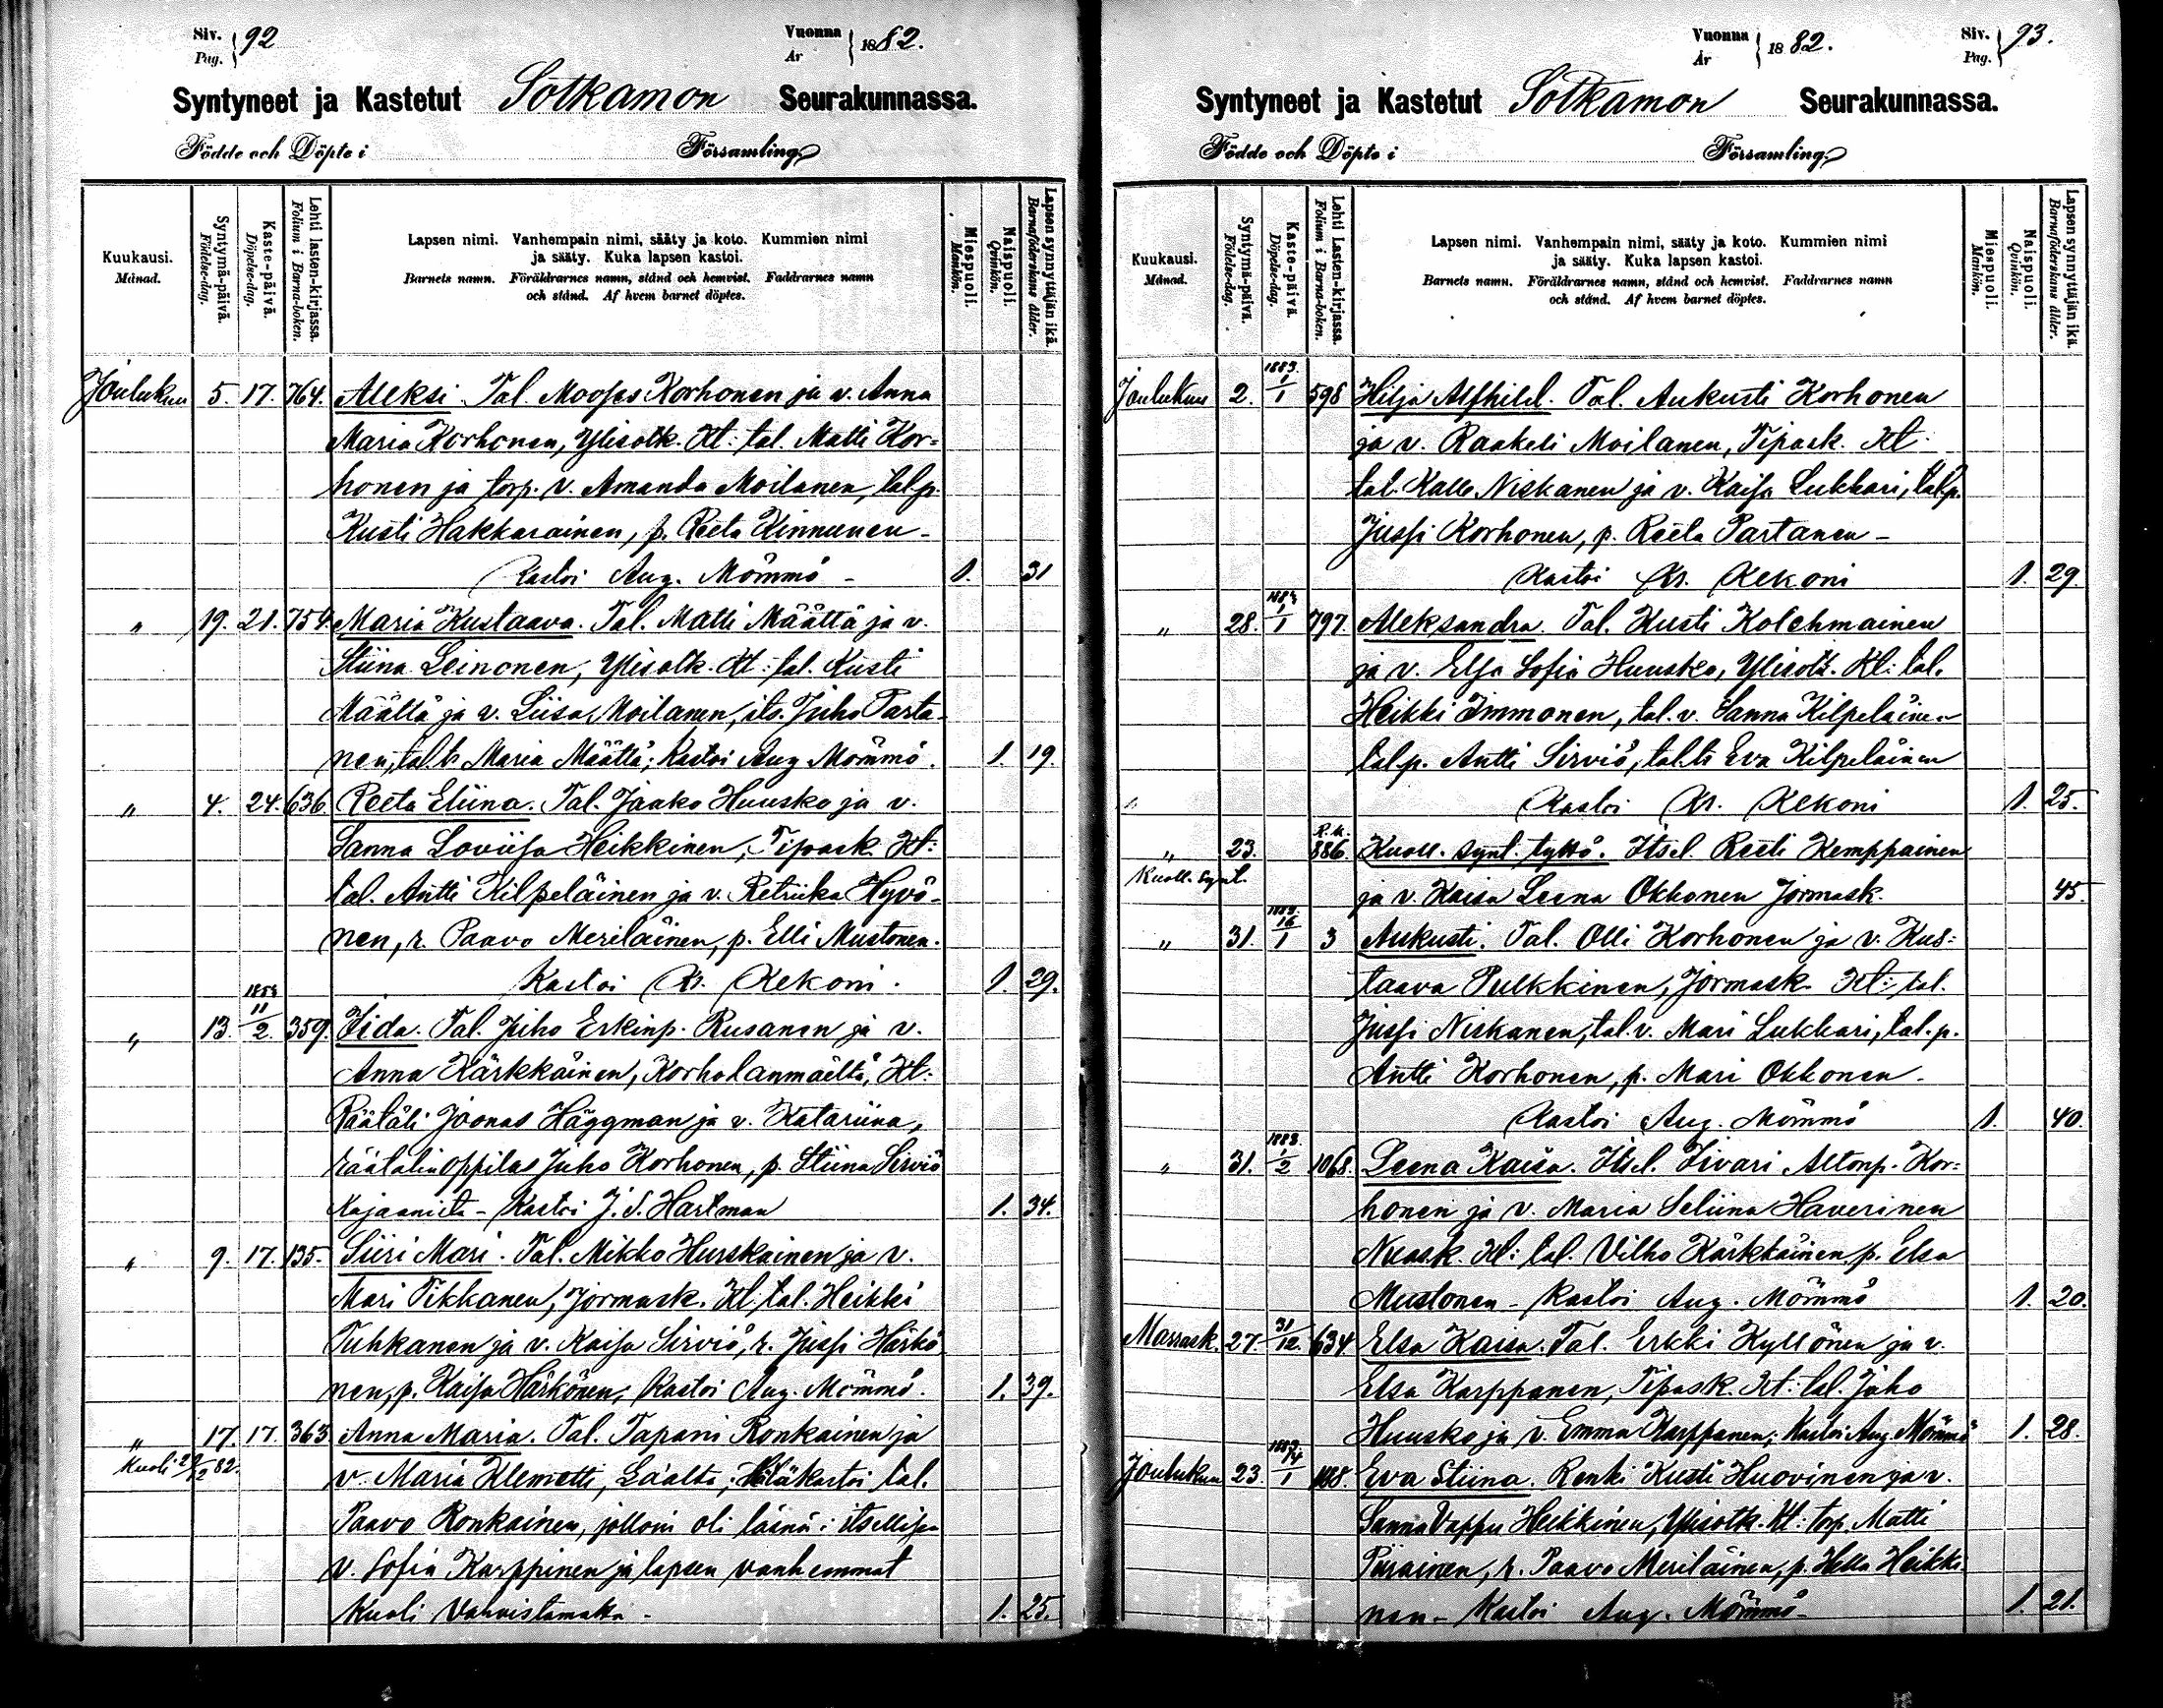 Siv. 92
Pag.
Vuonna 1882.
År
Syntyneet ja Kastetut Sotkamon Seurakunnassa.
Födde och Döpte i Församling.
Kuukausi. Månad.
Syntymä-päivä. Födelse-dag.
Kaste-päivä. Döpelse-dag.
Lehti lasten-kirjassa. Folium i Barna-boken.
Lapsen nimi. Vanhempain nimi, sääty ja koto. Kummien nimi
ja sääty. Kuka lapsen kastoi.
Barnets namn. Föräldrarnes namn, stånd och hemvist. Faddrarnes namn
och stånd. Af hvem barnet döptes.
Miespuoli. Mankön.
Naispuoli. Qvinkön.
Lapsen synnyttäjän ikä. Barnaföderskans ålder.
Joulukuu 5. 17. 764. Aleksi. Tal. Mooses Korhonen ja v. Anna
Maria Korhonen, Ylisotk. Kt: tal. Matti Kor=
honen ja torp. v. Amanda Moilanen, tal.p.
Kusti Hakkarainen, p. Reeta Kinnunen -
Kastoi Aug. Mömmö - 1. 31
" 19. 21. 754. Maria Kustaava. Tal. Matti Määttä ja v.
Stiina Leinonen, Ylisotk. Kt: tal. Kusti
Määttä ja v. Liisa Moilanen, its. Juho Parta-
nen, tal.t. Maria Määttä; Kastoi Aug Mömmö. 1. 19.
" 4. 24. 636 Reeta Eliina. Tal. Jaako Huusko ja v.
Sanna Loviisa Heikkinen, Tipask. Kt:
tal. Antti Kilpeläinen ja v. Retriika Hyvö-
nen, r. Paavo Meriläinen, p. Elli Mustonen.
Kastoi Kr. Kekoni. 1. 29.
" 13. 1883 11/2. 359. Iida. Tal. Juho Erkinp. Rusanen ja v.
Anna Kärkkäinen, Korholanmäeltä, Kt:
Räätäli Joonas Häggman ja v. Katariina,
räätälin oppilas Juho Korhonen, p. Stiina Sirviö
Kajaanista - Kastoi J. S. Hartman 1. 34.
" 9. 17. 135. Siiri Mari. Tal. Mikko Hurskainen ja v.
Mari Tikkanen, Jormask. Kt: tal. Heikki
Tuhkanen ja v. Kaisa Sirviö, r. Jussi Härkö
nen, p. Kaisa Härkönen; Kastoi Aug. Mömmö. 1. 39.
" 17. 17. 363 Anna Maria. Tal. Tapani Ronkainen ja
Kuoli 82. v. Maria Klemetti, tal.
Paavo Ronkainen, jolloin oli läsnä: itsellisen
v. Sofia Karppinen ja lapsen vanhemmat
Kuoli vahvistamatta - 1. 25.
Vuonna 1882.
År
Siv. 93.
Pag.
Syntyneet ja Kastetut Sotkamon Seurakunnassa.
Födde och Döpte i Församling.
Kuukausi. Månad.
Syntymä-päivä. Födelse-dag.
Kaste-päivä. Döpelse-dag.
Lehti Lasten-kirjassa. Folium i Barna-boken.
Lapsen nimi. Vanhempain nimi, sääty ja koto. Kummien nimi
ja sääty. Kuka lapsen kastoi.
Barnets namn. Föräldrarnes namn, stånd och hemvist. Faddrarnes namn
och stånd. Af hvem barnet döptes.
Miespuoli. Mankön.
Naispuoli. Qvinkön.
Lapsen synnyttäjän ikä. Barnaföderskans ålder.
Joulukuu 2. 1883. 1/1 598 Hilja Alfhild. Tal. Aukusti Korhonen
ja v. Raakeli Moilanen, Tipask. Kt
tal. Kalle Niskanen ja v. Kaisa Lukkari, tal.p.
Jussi Korhonen, p. Reeta Partanen -
Kastoi Kr. Kekoni 1. 29.
" 28. 1883 1/1 797. Aleksandra. Tal. Kusti Kolehmainen
ja v. Elsa Sofia Huusko, Ylisotk. Kt: tal.
Heikki Immonen, tal. v. Sanna Kilpeläinen
tal.p. Antti Sirviö, tal.t. Eva Kilpeläinen
Kastoi Kr. Kekoni 1. 25.
" 23. R.k. 886. Kuoll. synt. tyttö. Itsel. Reeti Kemppainen
Kuoll. synt. ja v. Kaisa Leena Okkonen Jormask. 45.
" 31. 16/1 3 Aukusti. Tal. Olli Korhonen ja v. Kus=
taava Pulkkinen, Jormask. Kt: tal.
Jussi Niskanen, tal. v. Mari Lukkari, tal.p.
Antti Korhonen, p. Mari Okkonen.
Kastoi Aug. Mömmö 1. 40.
" 31. 1883. 1/2 1068. Leena Kaisa. Itsel. Iivari Altonp. Kor=
honen ja v. Maria Seliina Haverinen
Nuask. Kt: tal. Vilho Kärkkäinen, p. Elsa
Mustonen - Kastoi Aug. Mömmö 1. 20.
Marrask. 27. 31/12. 634 Elsa Kaisa. Tal. Erkki Kyllönen ja v.
Elsa Karppanen, Tipask. Kt: tal. Juho
Huusko ja v. Emma Karppanen; Kastoi Aug Mömmö 1. 28.
Joulukuu 23. 1883. 14/1 Eva Stiina. Renki Kusti Huovinen ja v.
Sanna Vappu Heikkinen, Ylisotk. Kt: torp. Matti
Piirainen, r. Paavo Meriläinen, p. Hella Heikki-
nen - Kastoi Aug. Mömmö - 1. 21.